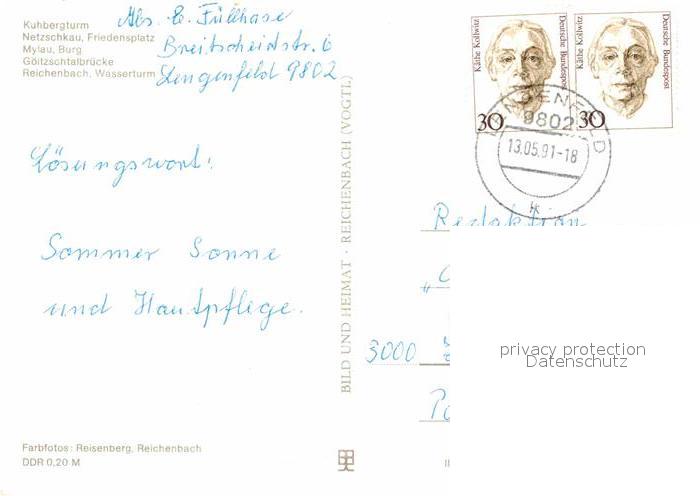 Kuhbergturm
Netzschkau, Friedensplatz
Mylau, Burg
Göltzschtalbrücke
Reichenbach, Wasserturm
Abs. E. Füllhase
Breitscheidstr. 6
Lengenfeld 9802
Lösungswort:
Sommer Sonne
und Hautpflege.
Farbfotos: Reisenberg, Reichenbach
DDR 0,20 M
BILD UND HEIMAT · REICHENBACH (VOGTL)
Käthe Kollwitz
Deutsche Bundespost
30
Käthe Kollwitz
Deutsche Bundespost
30
LENGENFELD
9802
13.05.91-18
Redaktion
3000
privacy protection
Datenschutz